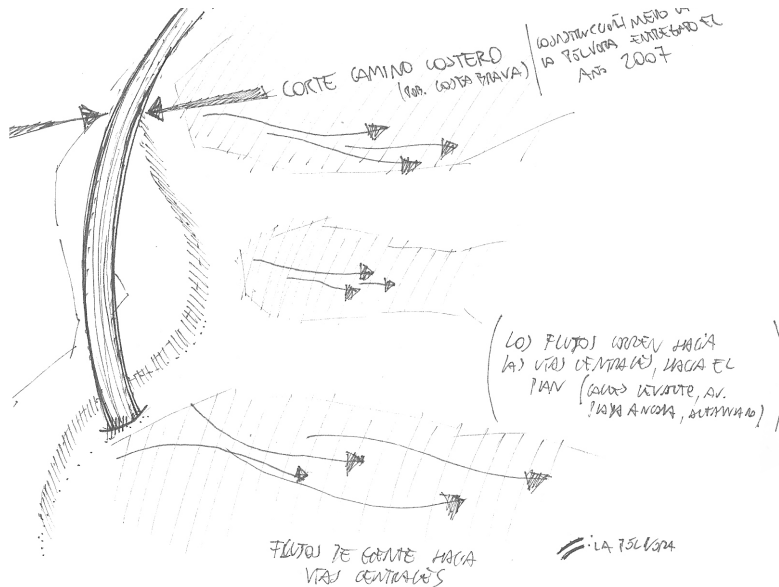 CORTE CAMINO COSTERO
(POB. COSTA BRAVA)
CONSTRUCCIÓN NUEVO
LA PÓLVORA ENTREGADO EL
AÑO 2007
LOS FLUJOS CORREN HACIA
LAS VÍAS CENTRALES, HACIA EL
PLAN (CALLES LEVARTE, AV.
PLAYA ANCHA, ALTAMIRANO)
FLUJOS DE GENTE HACIA
VÍAS CENTRALES
: LA PÓLVORA